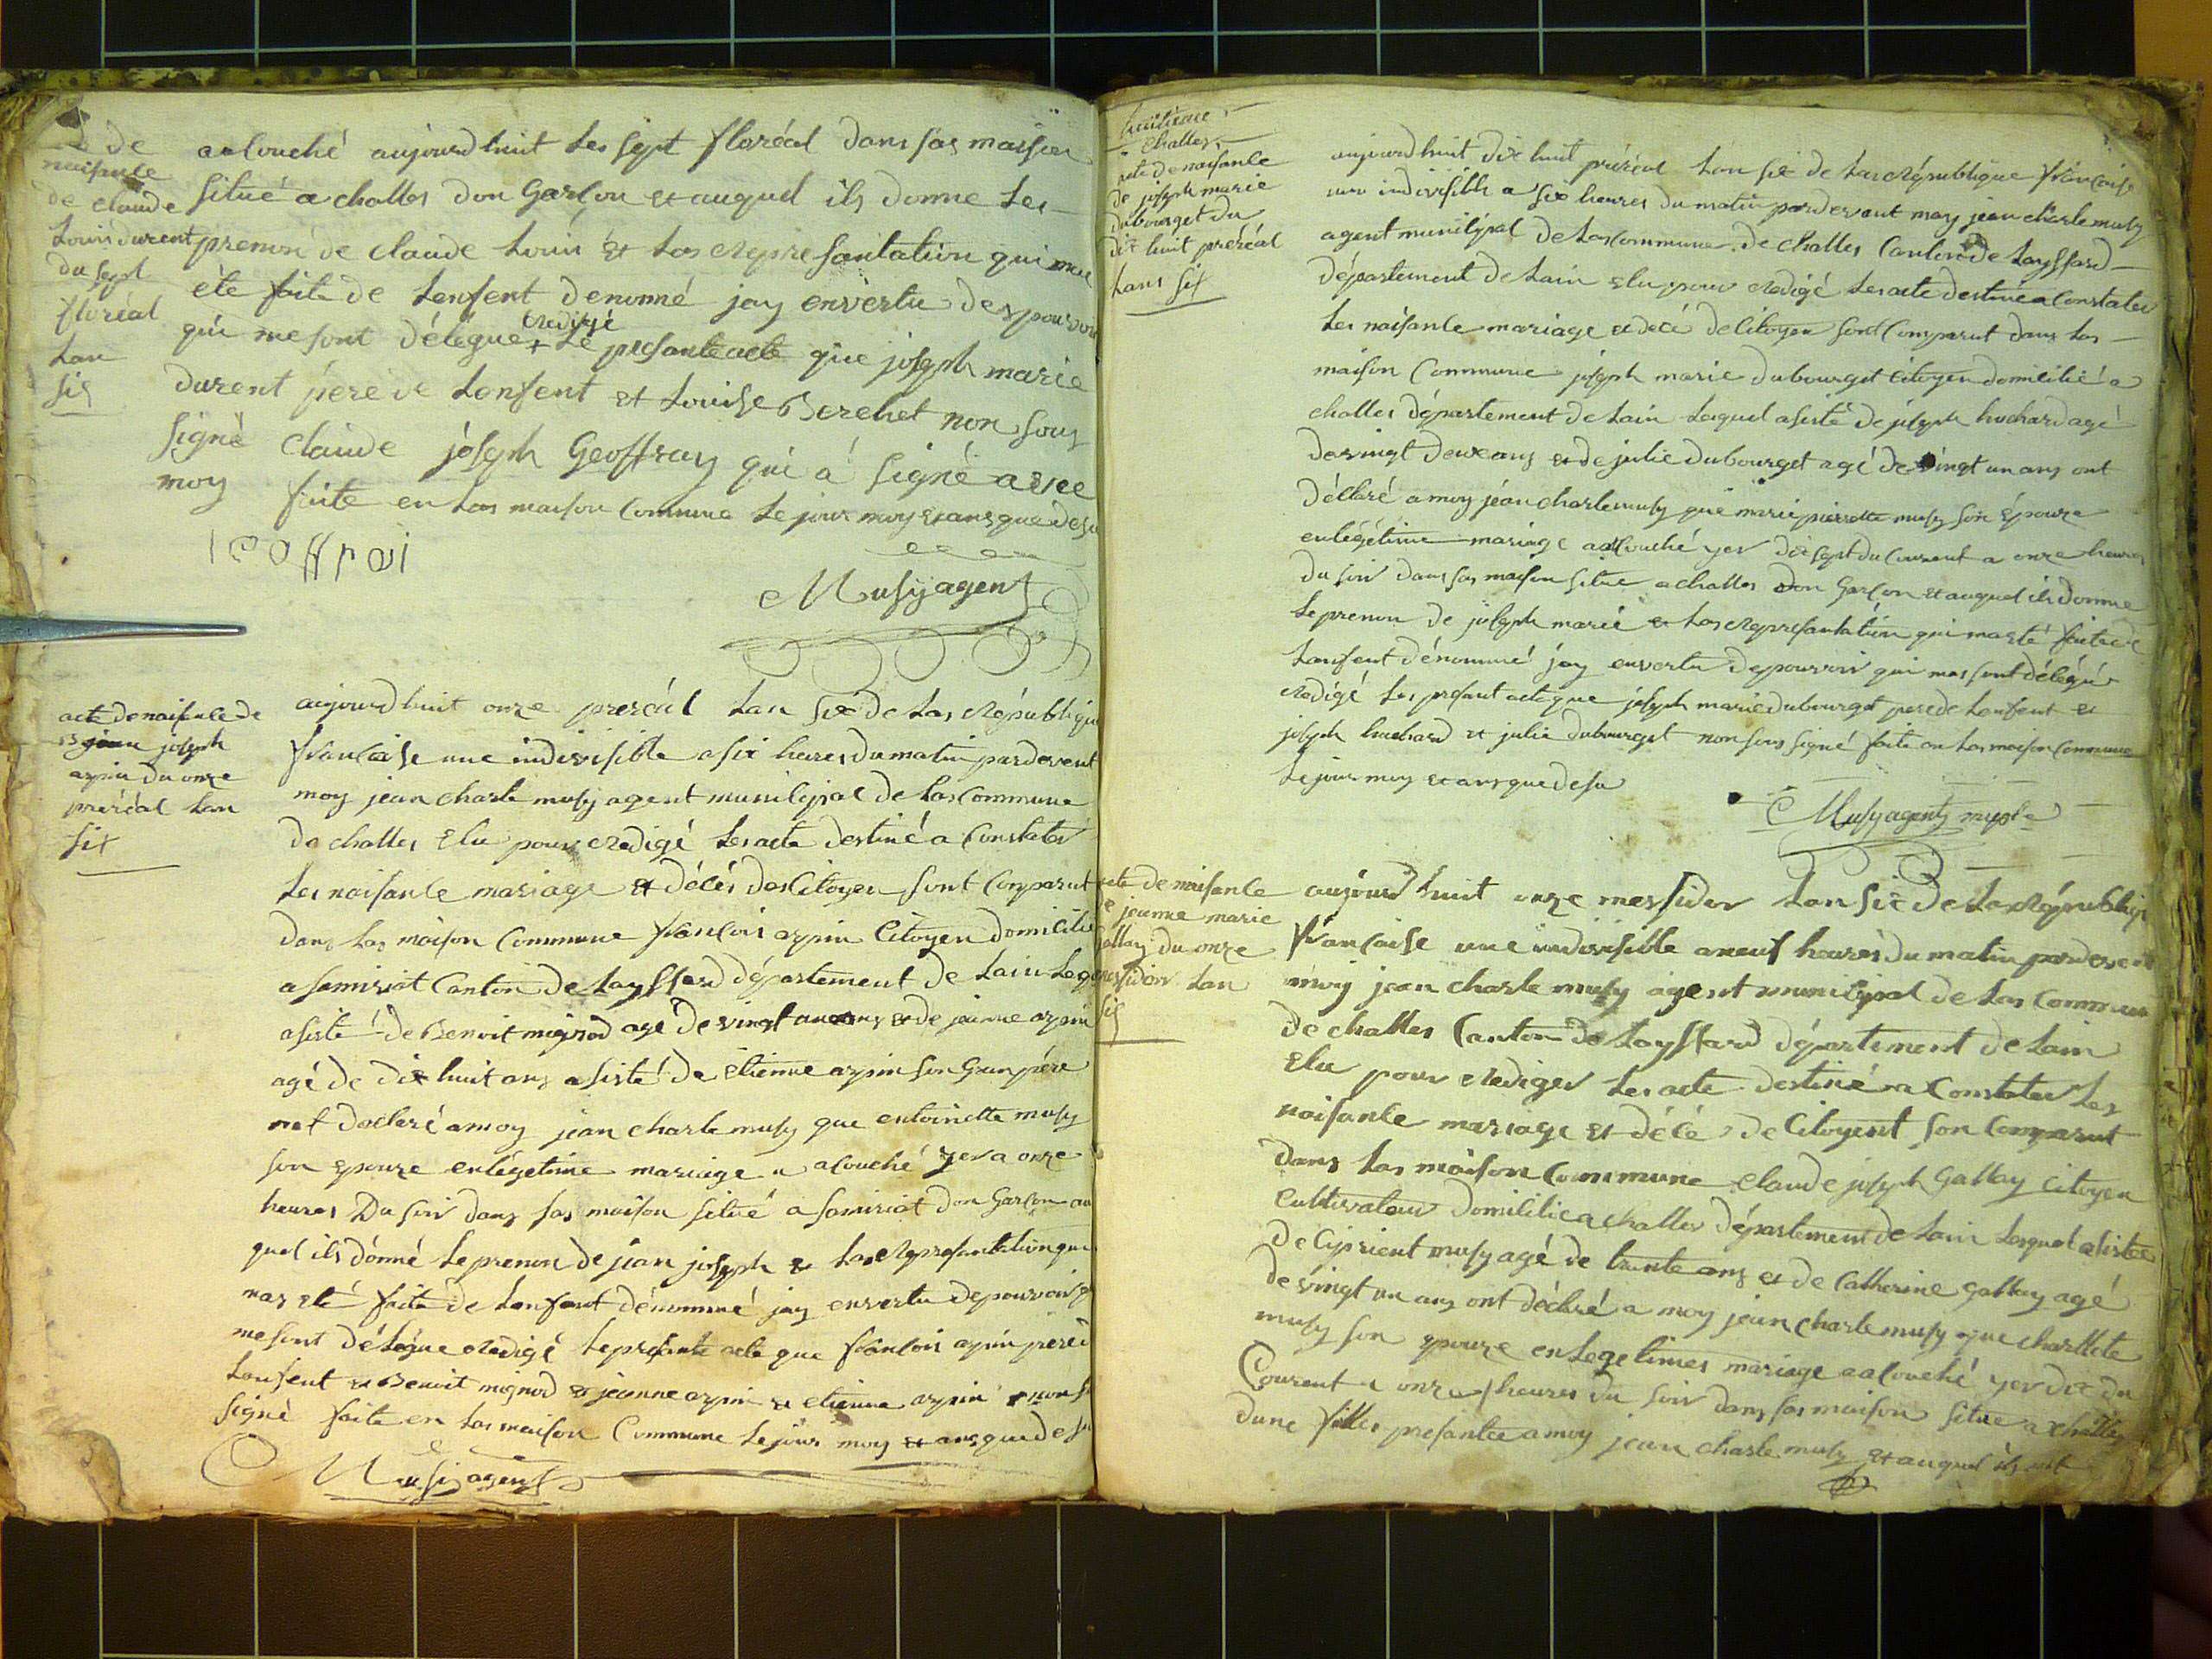 de
naisance
de claude
Louis durent
du sept
floréal
Lan
six
acouché aujourdhuit Les sept floréal dans sas maison
situé a challes don Garcon et auquel ils donne Les
prenon de claude Louis et Las represantation qui
été faite de Lenfent denomé jay envertu des pouvoir
qui me sont délégue + redigé Le presante acte que joseph marie
durent pere de Lenfent et Louise Berchet non sous
signé claude joseph Geoffray qui a signé avec
moy faite en Las maison Commune Le jour moy et ans que desu
Musy agent
acte de naisance de
jean joseph
azpin du onze
preréal Lan
six
aujourdhuit onze preréal Lan six de Las République
francaise une indivisible a six heures du matin pardevent
moy jean charle musy agent municipal de Las Commune
de challes Elu pour redigé Les acte destiné a Constater
Les naisance mariage et décés des Citoyen sont Comparut
dans Las maison Commune francois azpin Citoyen domicilié
a samiriat Canton de Layssard département de Lain
asisté de Benoit mignod age de vingt un ans et de jeanne azpin
agé de dix huit ans asisté de étienne azpin son Gran pére
mat declaré a moy jean charle musy que entoinette musy
son epouze enlégetime mariage a acouché yer a onze
heures Du soir dans sas maison situé a samiriat don Garcon au
quel ils donné Le prenon de jean joseph et Las represantation que
mas eté faite de Lenfant dénommé jay envertu de pouvoir
me sont délégue redigé Le presante acte que francois azpin pere
Lenfent et Benoit mignod et jeanne azpin et etienne azpin non
signé faite en Las maison Commune Le jour moy et ans que desu
Musy agent
huitieme
challes
acte de naisance
de joseph marie
dubourget du
dix huit preréal
Lans six
aujourdhuit dix huit preréal Lan six de Las République francaise
une indivisible a six heures du matin pardevent moy jean charle musy
agent municipal de Las Commune de challes Canton de Layssard
département de Lain elu pour redigé Les acte destiné a Constater
Les naisance mariage et decé de Citoyen sont Comparut dans Las
maison Commune joseph marie dubourget Citoyen domicilié a
challes département de Lain Laquel asisté de joseph huchard agé
de vingt deux ans et de julie dubourget agé de vingt un ans ont
déclaré a moy jean charle musy que marie pierrette musy son épouze
enlégétime mariage a acouché yer dix sept du Courent a onze heures
du soir dans sas maison situé a challes don Garcon et auquel ils donne
Le prenon de joseph marie et Las represantation qui mas été faite de
Lanfent dénommé jay envertu de pouvoir qui mas sont délégué
redigé Les presant acte que joseph marie dubourget pere de Lenfent et
joseph huchard et julie dubourget non sous signé faite en Las maison Commune
Le jour moy et ans que desu
Musy agent
acte de naisance
jeanne marie
gallay du onze
messidor Lan
six
aujourdhuit onze messidor Lan six de La République
francaise une indivisible a neuf heures du matin pardevent
moy jean charle musy agent municipal de Las Commune
de challes Canton de Layssard département de Lain
Elu pour rediger Les acte destiné a Constater Les
naisance mariage et décé de Citoyent son Comparut
dans Las maison Commune claude joseph Gallay Citoyen
Cultivateur domicilié a challes département de Lain Lesquel asistée
de Ciprient musy agé de trente ans et de Catherine gallay agé
de vingt un ans ont déclaré a moy jean charle musy que charllote
musy son epouze en Legetimes mariage a acouché yer dix du
Courent a onze heures du soir dans sas maison situé a challes
dune filles presantee a moy jean charle musy et auquel ils ont